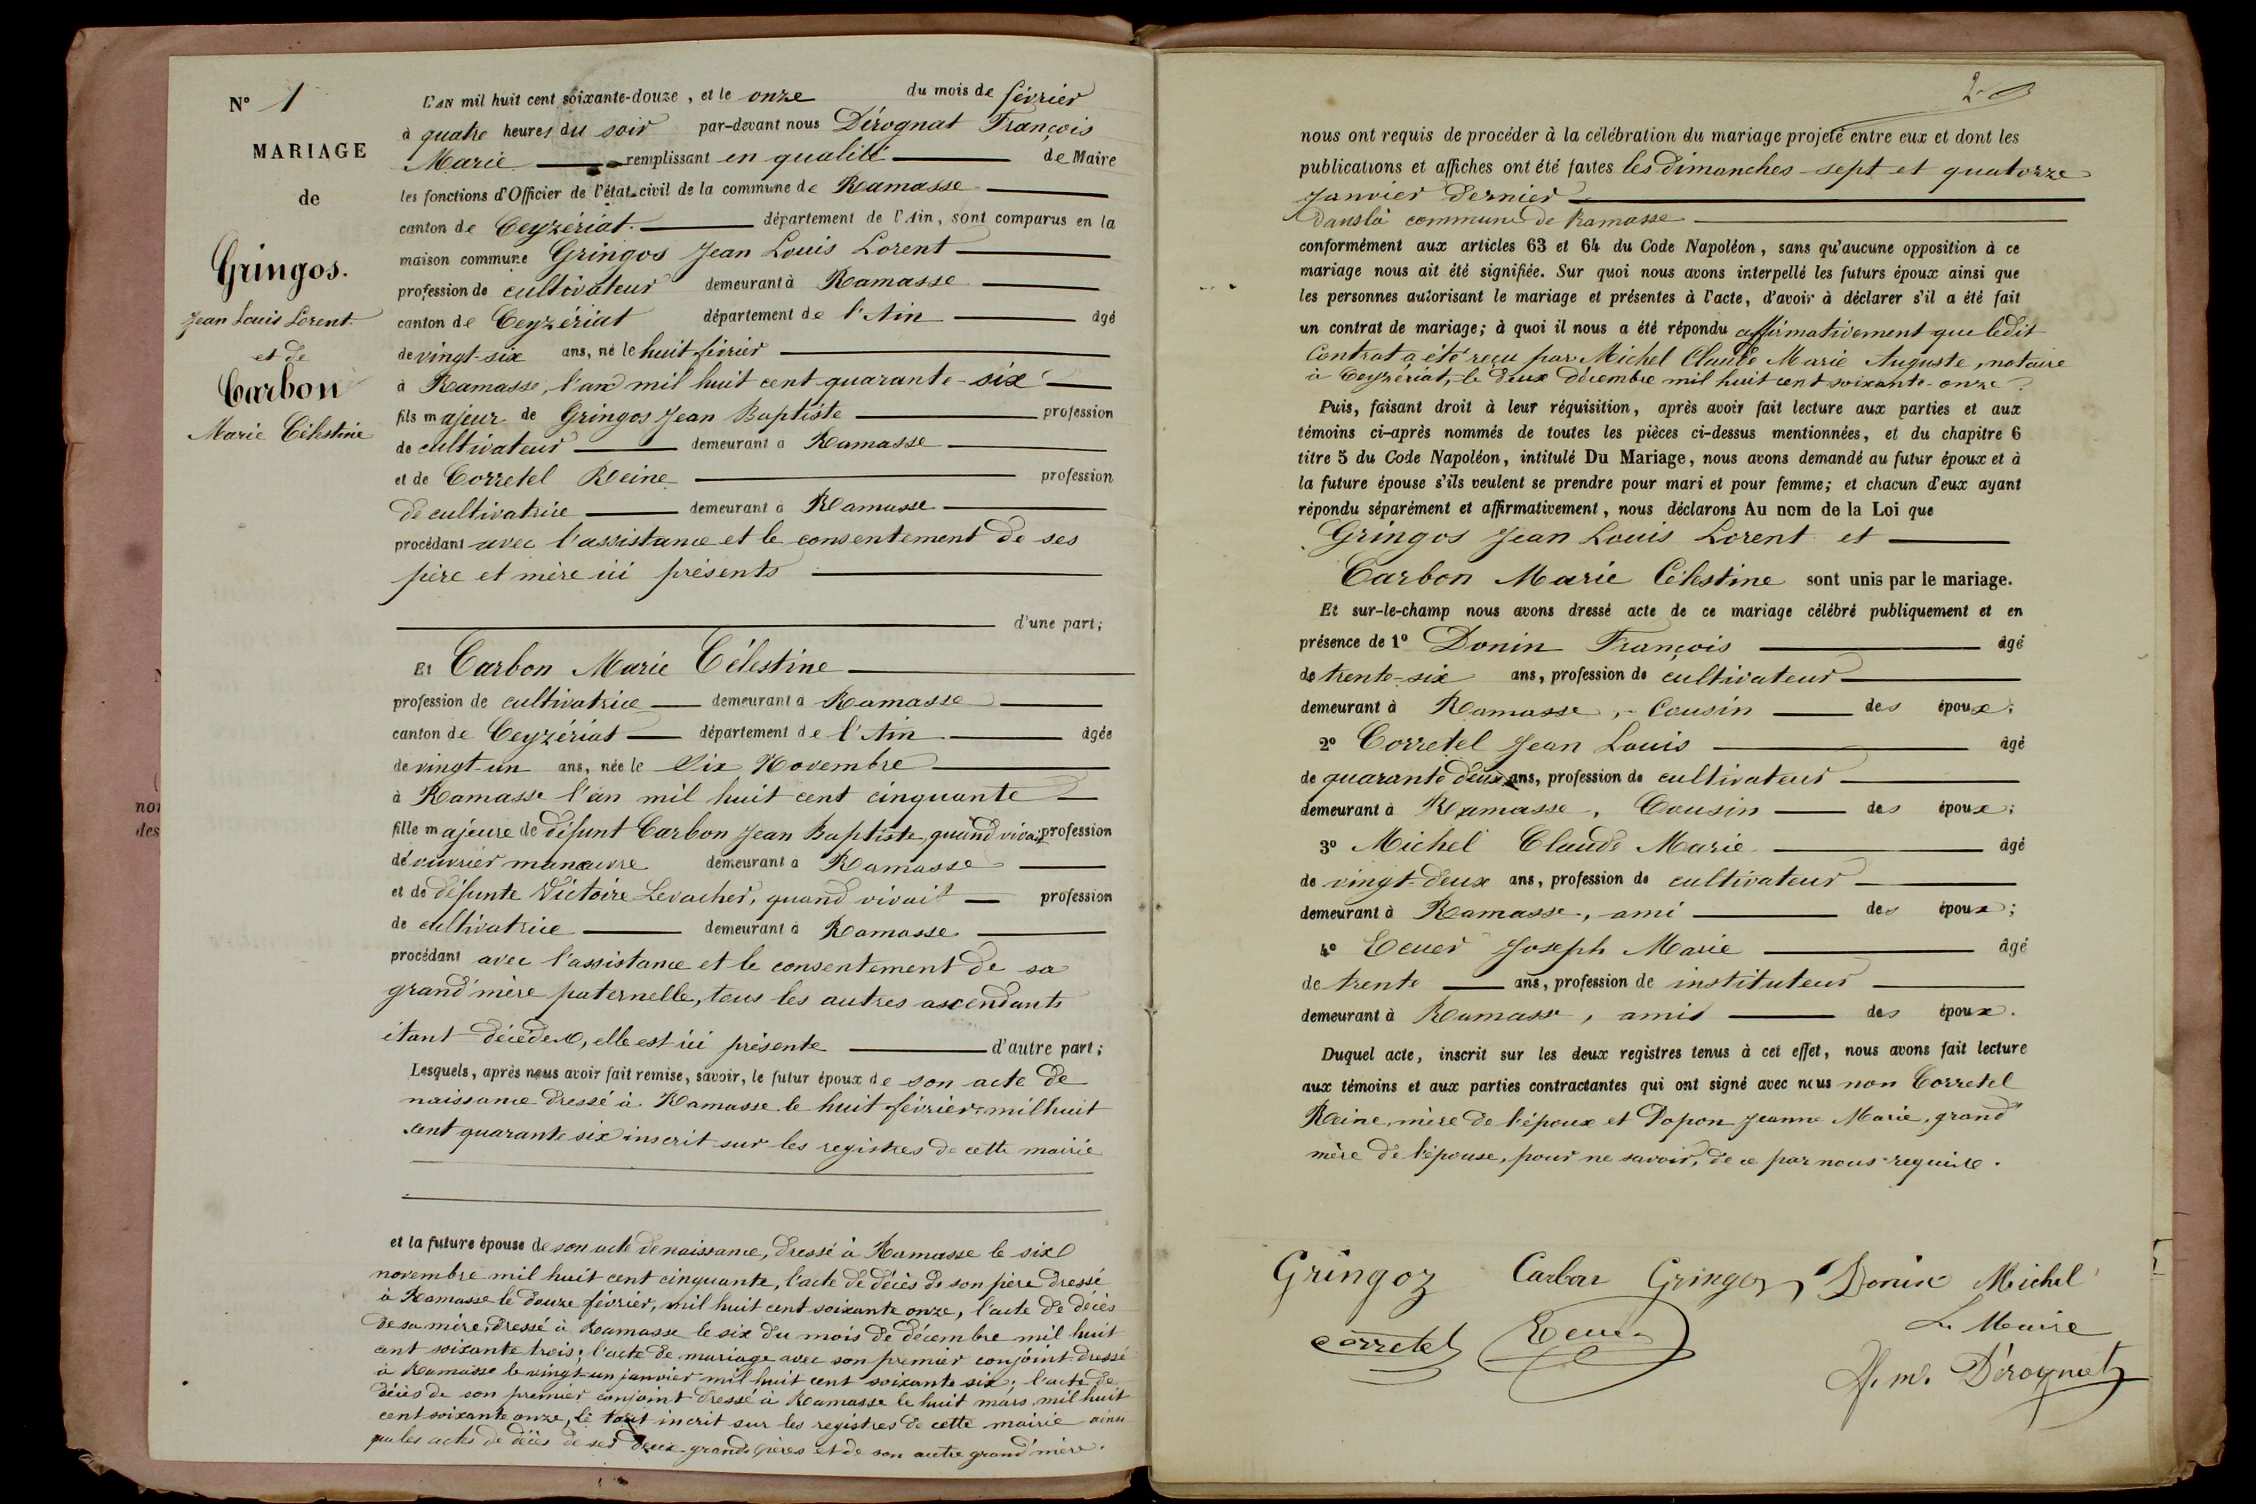 N° 1
MARIAGE
de
Gringos.
Jean Louis Lorent.
et de
Carbon
Marie Célestine
L'AN mil huit cent soixante-douze, et le onze du mois de février
à quatre heures du soir par-devant nous Dérognat François
Marie remplissant en qualité de Maire
les fonctions d'Officier de l'état civil de la commune de Ramasse
canton de Ceyzériat. département de l'Ain, sont comparus en la
maison commune Gringos Jean Louis Lorent
profession de cultivateur demeurant à Ramasse
canton de Ceyzériat département de l'Ain âgé
de vingt-six ans, né le huit février
à Ramasse, l'an mil huit cent quarante-six
fils majeur de Gringos Jean Baptiste profession
de cultivateur demeurant à Ramasse
et de Corretel Reine profession
de cultivatrice demeurant à Ramasse
procédant avec l'assistance et le consentement de ses
père et mère ici présents
d'une part;
Et Carbon Marie Célestine
profession de cultivatrice demeurant à Ramasse
canton de Ceyzériat département de l'Ain âgée
de vingt-un ans, née le Six Novembre
à Ramasse l'an mil huit cent cinquante
fille majeure de défunt Carbon Jean Baptiste, quand vivait profession
de ouvrier manœuvre demeurant à Ramasse
et de défunte Victoire Levacher, quand vivait profession
de cultivatrice demeurant à Ramasse
procédant avec l'assistance et le consentement de sa
grand'mère paternelle, tous les autres ascendants
étant décédés, elle est ici présente d'autre part;
Lesquels, après nous avoir fait remise, savoir, le futur époux de son acte de
naissance dressé à Ramasse le huit février mil huit
cent quarante six inscrit sur les registres de cette mairie
et la future épouse de son acte de naissance, dressé à Ramasse le six
novembre mil huit cent cinquante, l'acte de décès de son père dressé
à Ramasse le douze février, mil huit cent soixante onze, l'acte de décès
de sa mère, dressé à Ramasse le six du mois de décembre mil huit
cent soixante trois; l'acte de mariage avec son premier conjoint dressé
à Ramasse le vingt-un janvier mil huit cent soixante six; l'acte de
décès de son premier conjoint dressé à Ramasse le huit mars mil huit
cent soixante onze, le tout incrit sur les registres de cette mairie ainsi
que les actes de décès de ses deux grands pères et de son autre grand'mère.
2
nous ont requis de procéder à la célébration du mariage projeté entre eux et dont les
publications et affiches ont été faites les dimanches sept et quatorze
Janvier dernier
dans la commune de Ramasse
conformément aux articles 63 et 64 du Code Napoléon, sans qu'aucune opposition à ce
mariage nous ait été signifiée. Sur quoi nous avons interpellé les futurs époux ainsi que
les personnes autorisant le mariage et présentes à l'acte, d'avoir à déclarer s'il a été fait
un contrat de mariage; à quoi il nous a été répondu affirmativement que ledit
Contrat a été reçu par Michel Claude Marie Auguste, notaire
à Ceyzériat, le deux Décembre mil huit cent soixante-onze
Puis, faisant droit à leur réquisition, après avoir fait lecture aux parties et aux
témoins ci-après nommés de toutes les pièces ci-dessus mentionnées, et du chapitre 6
titre 5 du Code Napoléon, intitulé Du Mariage, nous avons demandé au futur époux et à
la future épouse s'ils veulent se prendre pour mari et pour femme; et chacun d'eux ayant
répondu séparément et affirmativement, nous déclarons Au nom de la Loi que
Gringos Jean Louis Lorent et
Carbon Marie Célestine sont unis par le mariage.
Et sur-le-champ nous avons dressé acte de ce mariage célébré publiquement et en
présence de 1° Donin François âgé
de trente-six ans, profession de cultivateur
demeurant à Ramasse, Cousin des époux;
2° Corretel Jean Louis âgé
de quarante deux ans, profession de cultivateur
demeurant à Ramasse, Cousin des époux;
3° Michel Claude Marie âgé
de vingt-deux ans, profession de cultivateur
demeurant à Ramasse, ami des époux;
4° Ecuer Joseph Marie âgé
de trente ans, profession de instituteur
demeurant à Ramasse, ami des époux.
Duquel acte, inscrit sur les deux registres tenus à cet effet, nous avons fait lecture
aux témoins et aux parties contractantes qui ont signé avec nous non Corretel
Reine, mère de l'époux et Papon Jeanne Marie, grand
mère de l'épouse, pour ne savoir, de ce par nous requise.
Gringoz Carbon Gringoz Donin Michel
Le Maire
corretel Ecuer
F. m. Dérognat